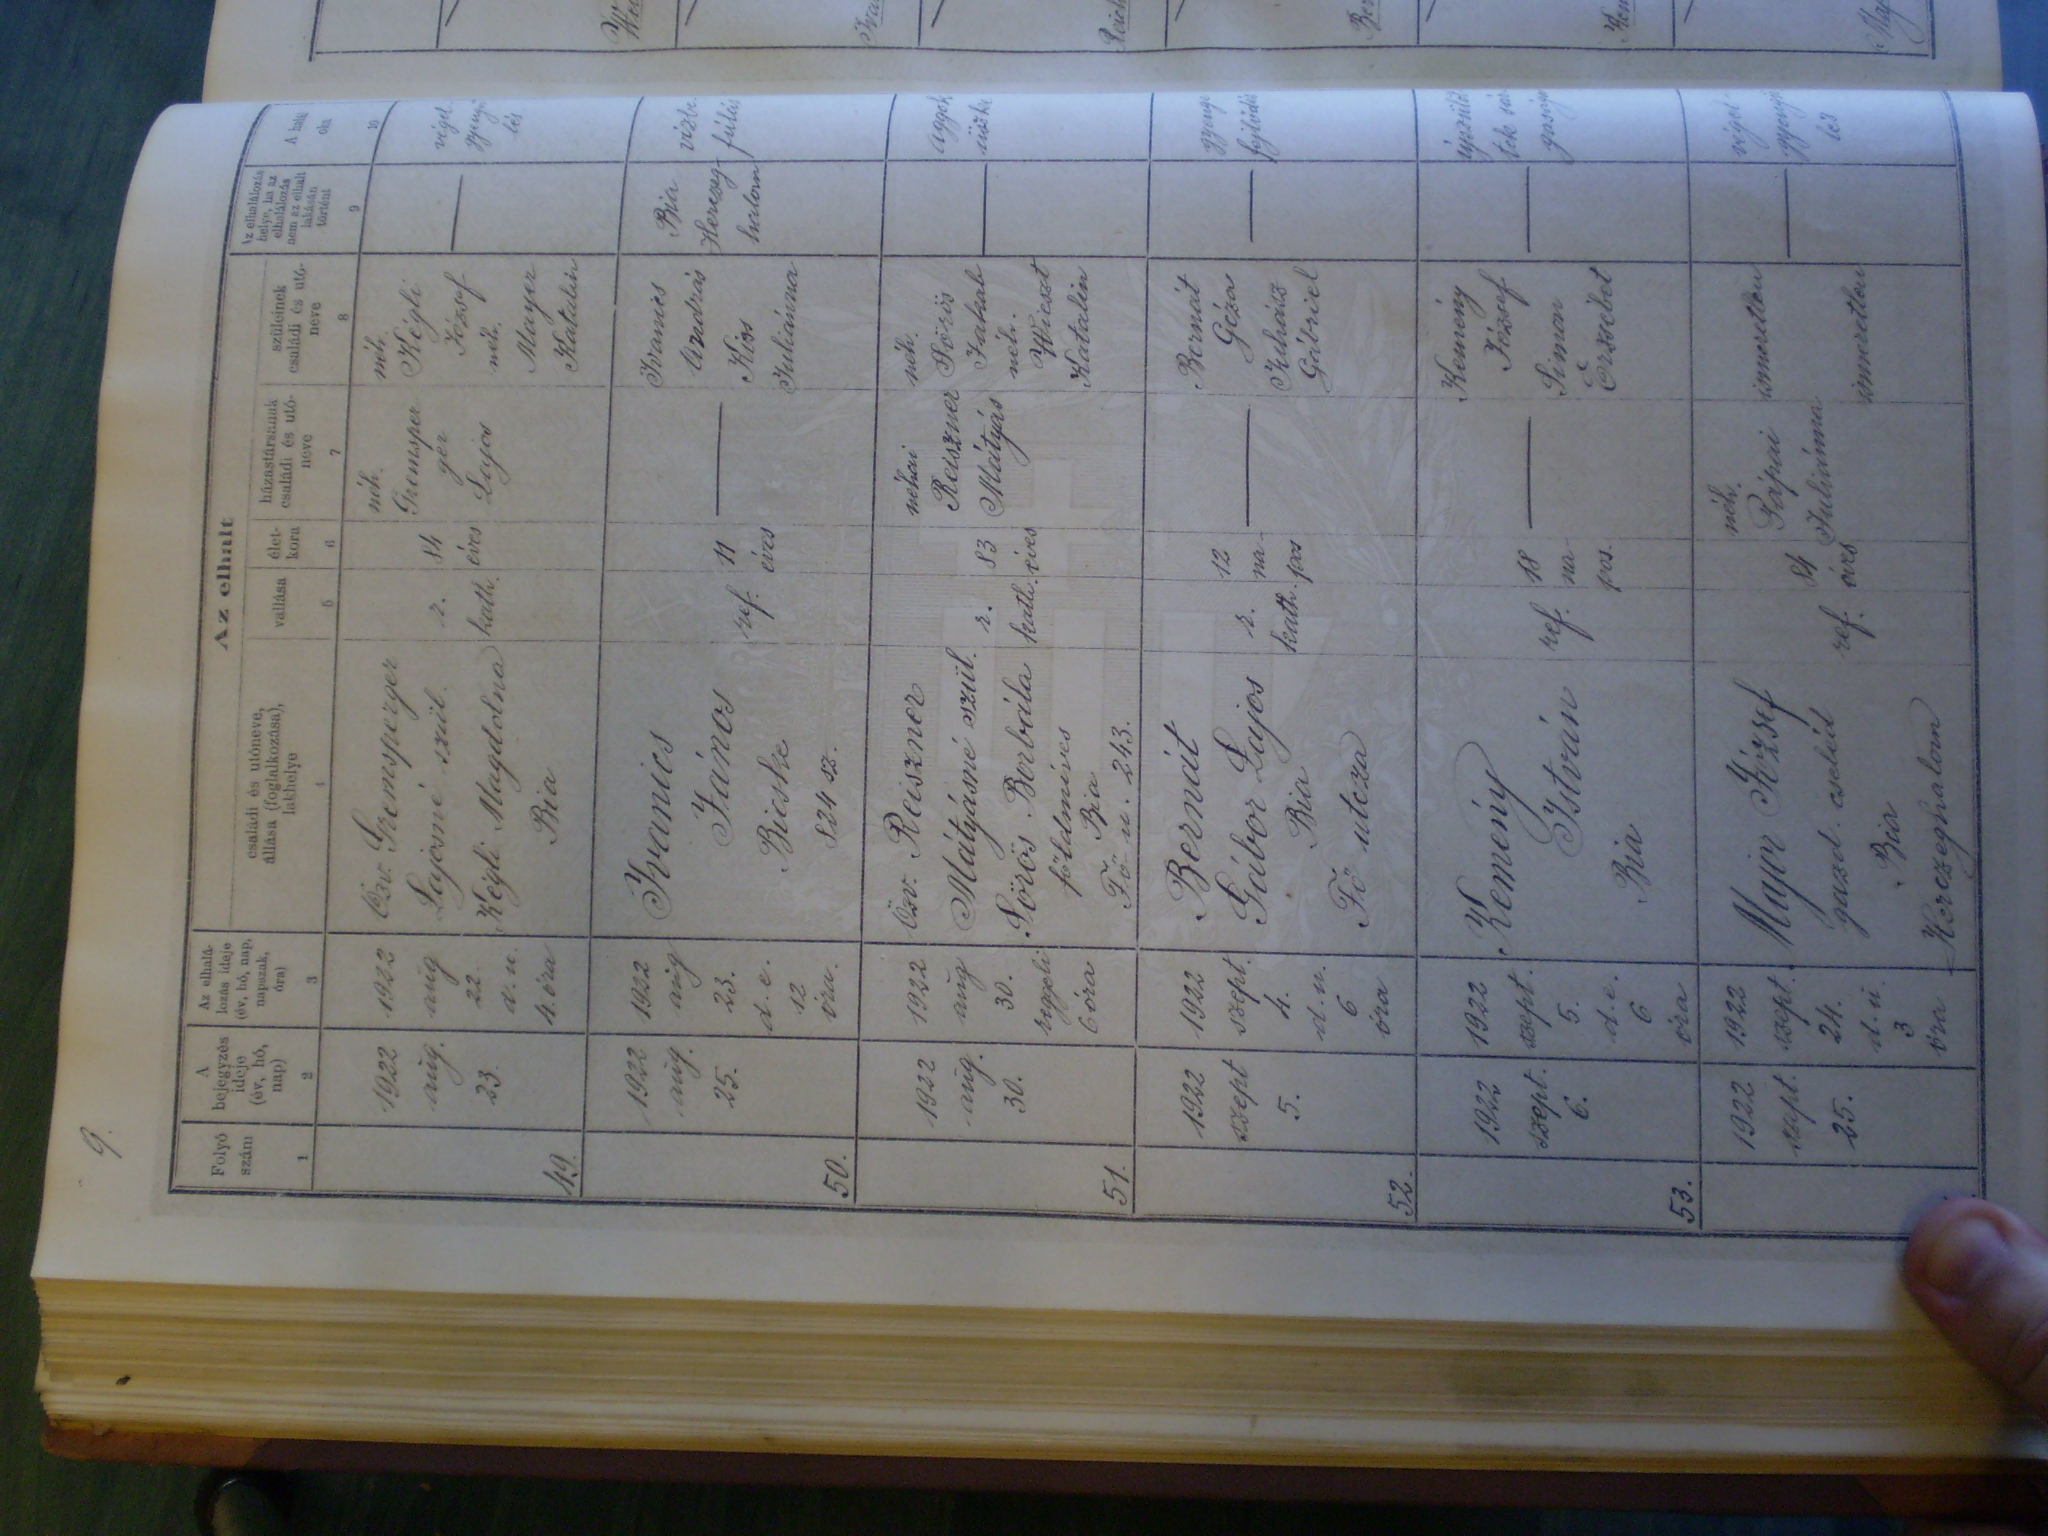 9.
Az elhalt
Folyó
szám
A
bejegyzés
ideje
(év, hó,
nap)
Az elhalá-
lozás ideje
(év, hó, nap,
napszak,
óra)
családi és utóneve,
állása (foglalkozása),
lakhelye
vallása
élet-
kora
házastársának
családi és utó-
neve
szüleinek
családi és utó-
neve
Az elhalálozás
helye, ha az
elhalálozás
nem az elhalt
lakásán
történt
A halál
oka
1
2
3
4
5
6
7
8
9
10
49.
1922
aug.
23.
1922
aug
22
d. u.
4 óra
Özv. Gremsperger
Lajosné szül.
Kégli Magdolna
Bia
r.
kath.
84
éves
néh.
Gremsper
ger
Lajos
néh.
Kégli
József
néh.
Mayer
Katalin
végel.
gyengü
lés
50.
1922
aug.
25.
1922
aug
23.
d. e.
12
óra.
Ivanics
János
Bicske
824 sz.
ref.
11
éves
Ivanics
András
Kiss
Juliánna
Bia
Herczeg
halom
vízbe
fulás
51.
1922
aug.
30.
1922
aug
30.
reggeli
6 óra
Özv. Reiszner
Mátyásné szül.
Sörös Borbála
földmíves
Bia
Fő u. 243.
r.
kath.
83
éves
néhai
Reiszner
Mátyás
néh.
Sörös
Jakab
néh.
Wieszt
Katalin
aggok
52.
1922
szept
5.
1922
szept.
4.
d. u.
6
óra
Bernát
Gábor Lajos
Bia
Fő utcza
r.
kath.
12
na-
pos
Bernát
Géza
Juhász
Gábriel
gyenge
fejlődés
53.
1922
szept.
6.
1922
szept.
5.
d. e.
6
óra
Kemény
István
Bia
ref.
18
na-
pos.
Kemény
József
Simon
Erzsébet
1922
szept.
25.
1922
szept.
24.
d. u.
3
óra
Major József
gazd. cseléd
Bia
Herczeghalom
ref.
84
éves
néh.
Pápai
Juliánna
ismeretlen
ismeretlen
végel-
gyengü
lés